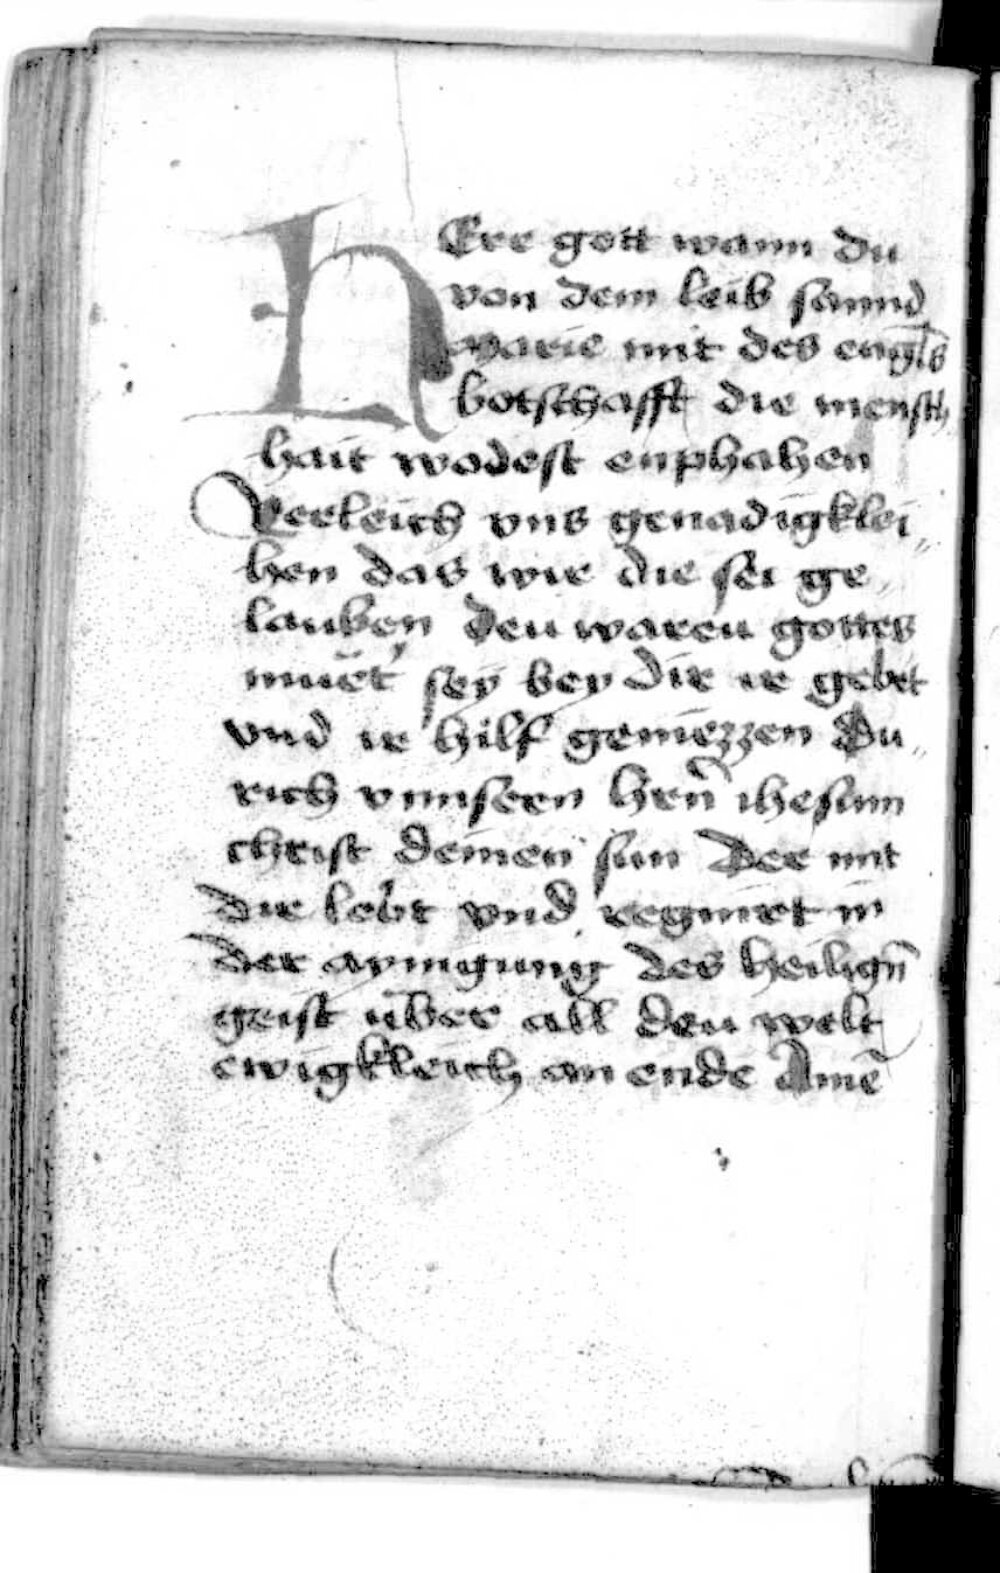 HEre gott wann du
von dem leib sannd
Marie mit des engls
botschafft die mensch
hait wodest enphahen
Verleich vns genadigklei„
hen das wir die sei ge„
lauben den waren gottes
muet sey bey dir ir gebet
vnd ir hilf geniezzen Du„
rich vnnsern hern̄ ihesum
christ deinen sun Der mit
dir lebt vnd regnirt in
der aynigung des heilign̄
geist über all den welt
ewigkleich an ende Amē